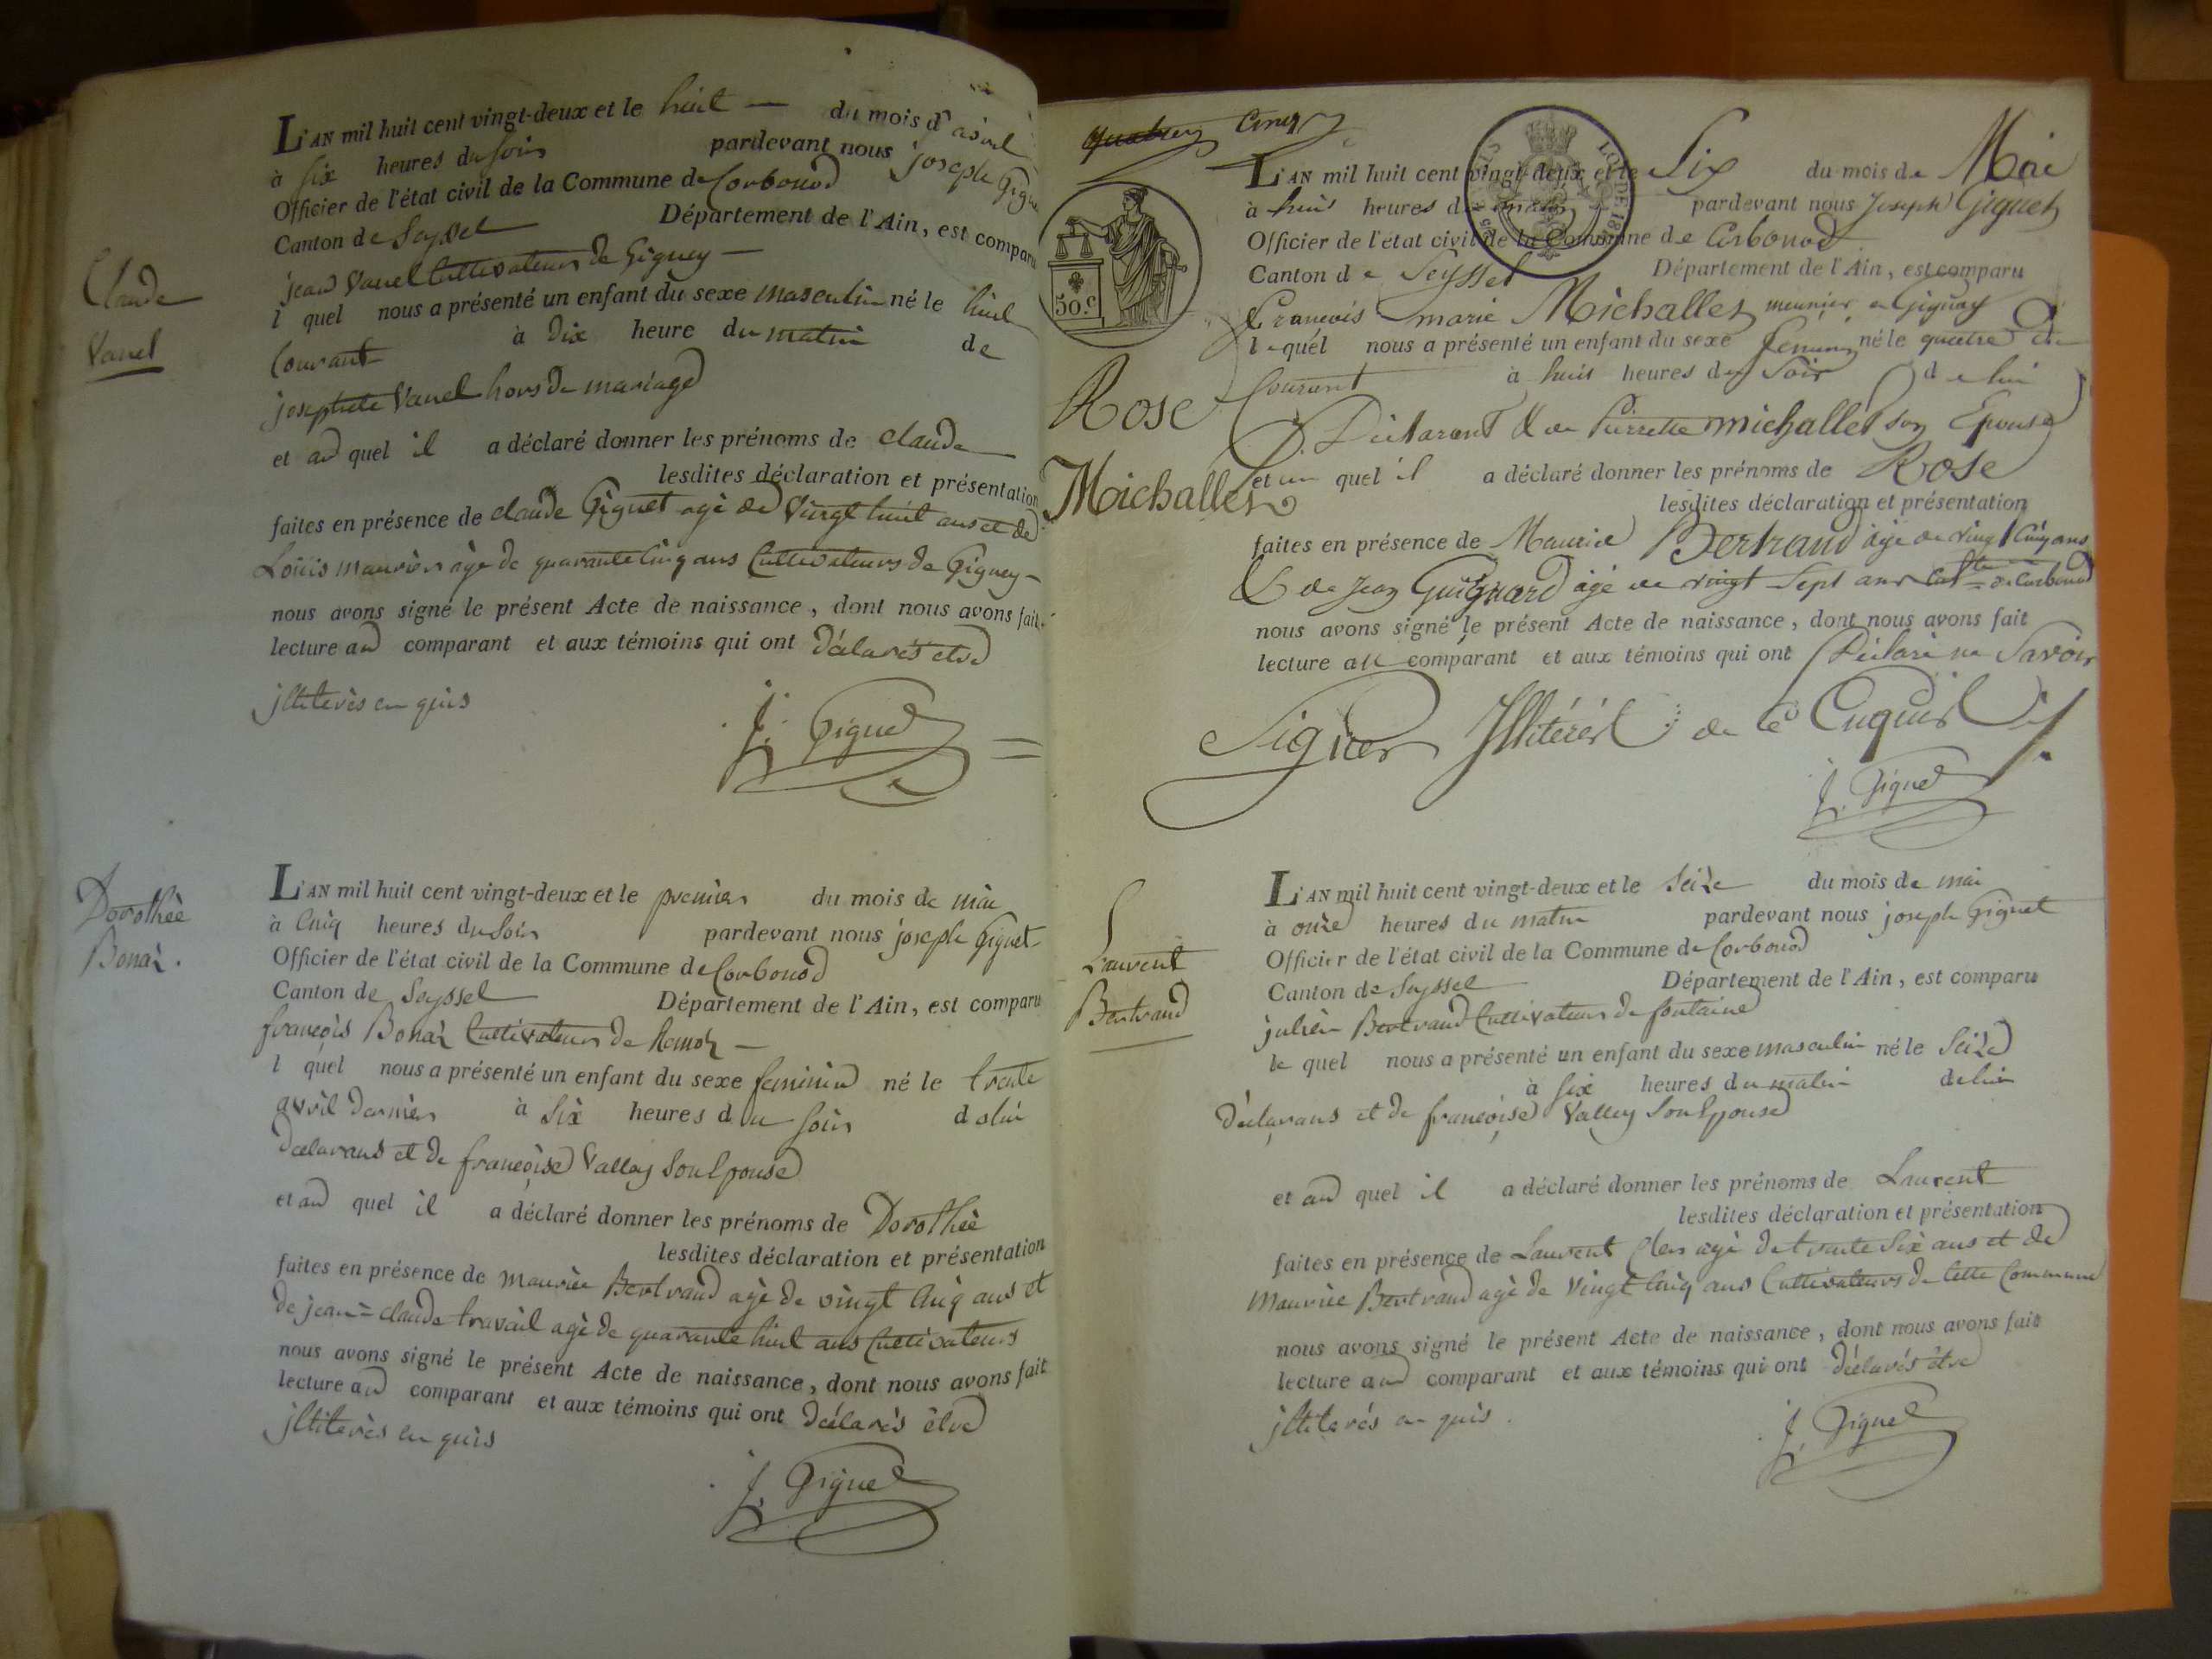 L'AN mil huit cent vingt-deux et le huit du mois d'avril
à six heures du soir pardevant nous joseph Gigue
Officier de l'état civil de la Commune de Corbonod
Canton de Seyssel Département de l'Ain, est comparu
jean Vanel Cultivateur de Gigney
l quel nous a présenté un enfant du sexe masculin né le huit
Courant à dix heure du matin de
josephete Vanel hors de mariage
et au quel il a déclaré donner les prénoms de claude
lesdites déclaration et présentation
faites en présence de claude Giguet agé de vingt huit ans et de
Louis maurier agé de quarante cinq ans Cultivateurs de Gigney
nous avons signé le présent Acte de naissance, dont nous avons fait
lecture au comparant et aux témoins qui ont déclarés etre
jlliterés en quis
J. Giguet
Claude
Vanel
L'AN mil huit cent vingt-deux et le premier du mois de mai
à Cinq heures du soir pardevant nous joseph Giguet
Officier de l'état civil de la Commune de Corbonod
Canton de Seyssel Département de l'Ain, est comparu
françois Bonaz Cultivateur de
l quel nous a présenté un enfant du sexe feminin né le trente
avril dernier à six heures du soir de lui
declarans et de françoise Valley son Epouse
et au quel il a déclaré donner les prénoms de Dorothée
lesdites déclaration et présentation
faites en présence de maurice Bertrand agé de vingt cinq ans et
de jean=claude travail agé de quarante huit ans Cultivateurs
nous avons signé le présent Acte de naissance, dont nous avons fait
lecture au comparant et aux témoins qui ont déclarés être
jlliterés en quis
J. Giguet
Dorothée
Bonaz.
Cinq
50.c
L'AN mil huit cent vingt-deux et le Six du mois de Mai
à huit heures du matin pardevant nous Joseph Giguet
Officier de l'état civil de la Commune de Corbonod
Canton de Seyssel Département de l'Ain, est comparu
François marie Michallet meunier en Gignay
lequel nous a présenté un enfant du sexe feminin né le quatre du
Courant à huit heures du Soir de lui
Déclarant & de Pierrette michallet son Epouse
et au quel il a déclaré donner les prénoms de Rose
lesdites déclaration et présentation
faites en présence de Maurice Bertrand âgé de vingt Cinq ans
& de Jean Guignard âgé de vingt Sept ans Cult.rs de Corbonod
nous avons signé le présent Acte de naissance, dont nous avons fait
lecture au comparant et aux témoins qui ont Déclaré ne Savoir
Signer Illitérés de ce Enquis
J. Giguet
Rose
Michallet
L'AN mil huit cent vingt-deux et le seize du mois de mai
à onze heures du matin pardevant nous joseph Giguet
Officier de l'état civil de la Commune de Corbonod
Canton de Seyssel Département de l'Ain, est comparu
julien Bertrand Cultivateur de fontaine
le quel nous a présenté un enfant du sexe masculin né le seize
à six heures du matin de lui
déclarans et de françoise Valley son Epouse
et au quel il a déclaré donner les prénoms de Laurent
lesdites déclaration et présentation
faites en présence de Laurent agé de trente six ans et de
Maurice Bertrand agé de vingt cinq ans Cultivateurs de cette Commune
nous avons signé le présent Acte de naissance, dont nous avons fait
lecture au comparant et aux témoins qui ont déclarés être
jlliterés en quis.
J. Giguet
Laurent
Bertrand